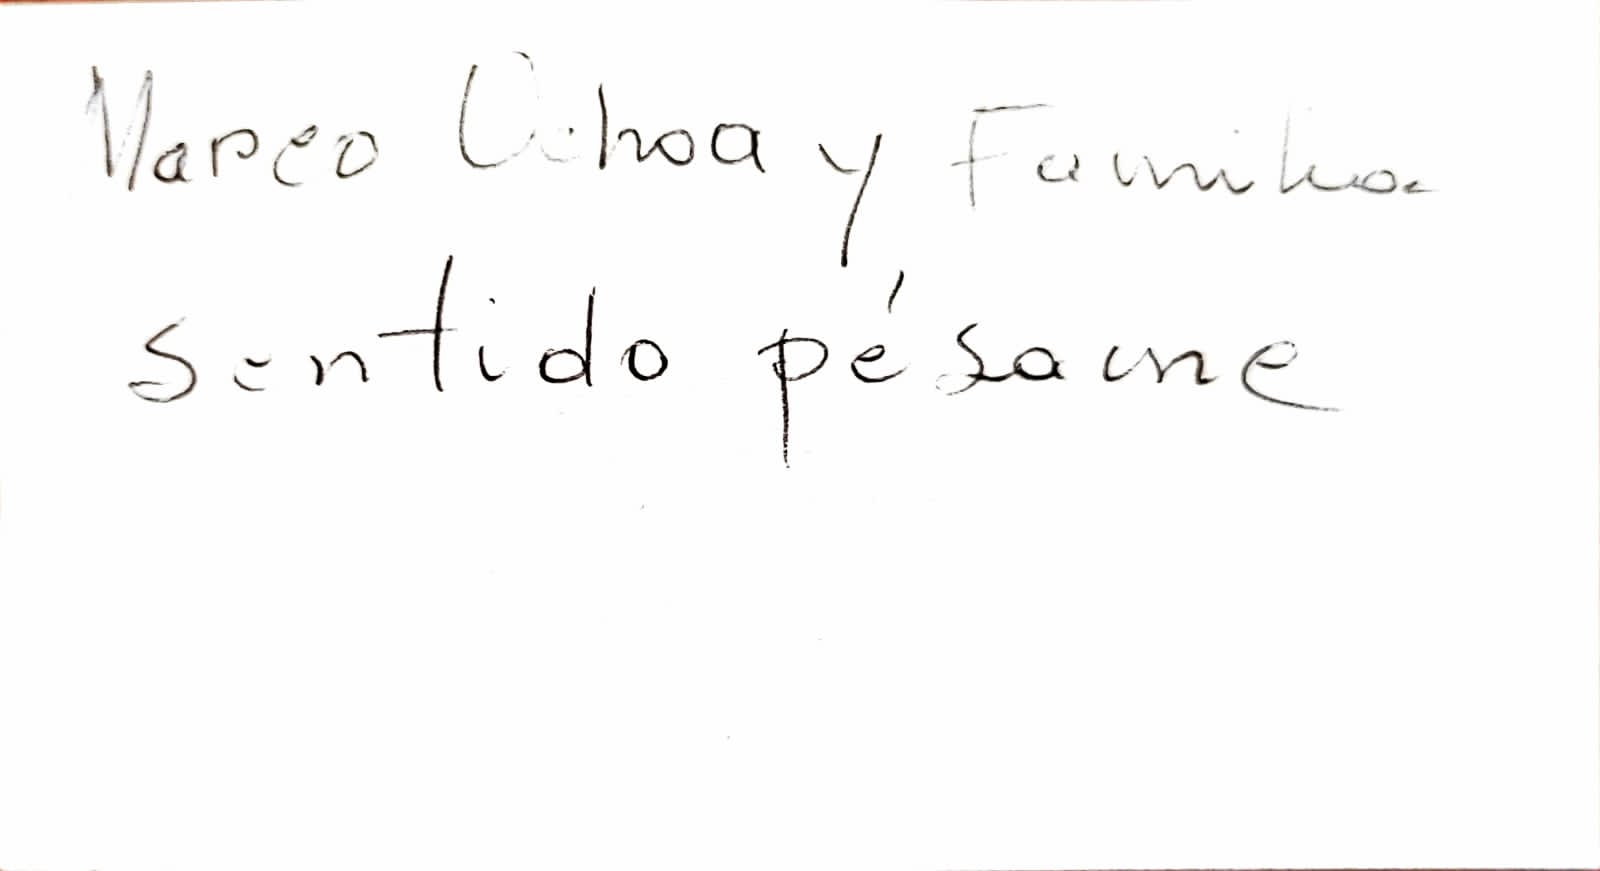 Marco Ochoa y Familia
sentido pésame